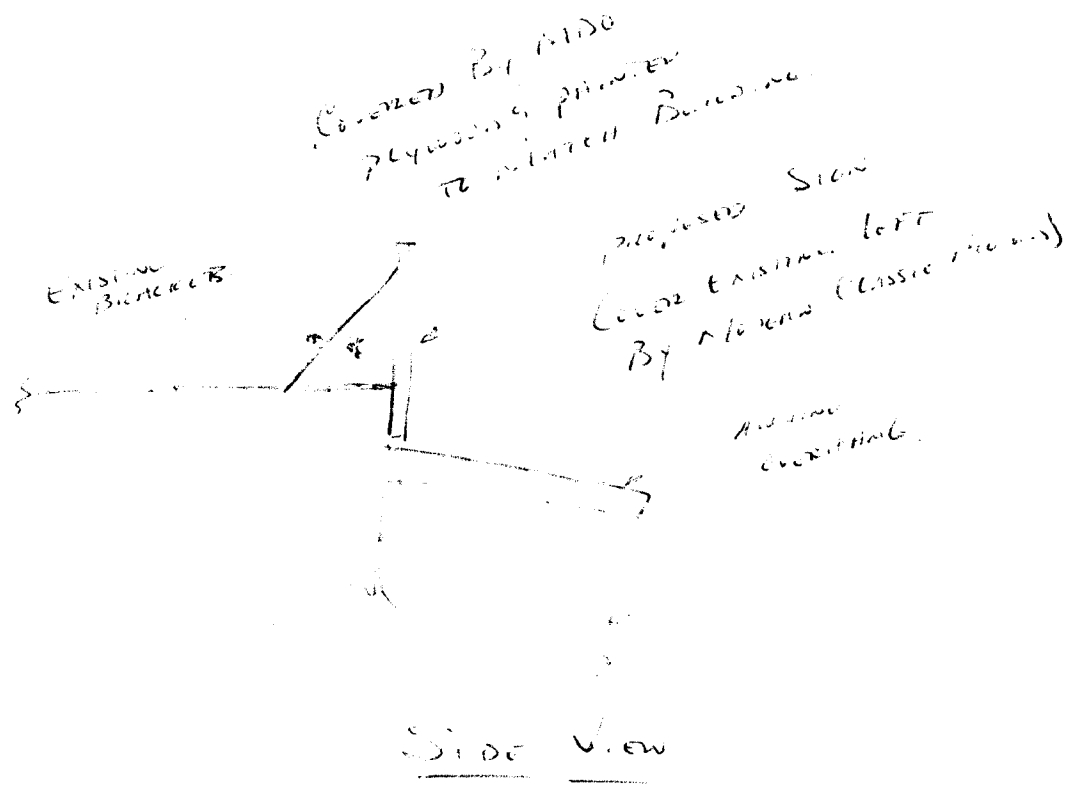 COVERED BY MDO
PLYWOOD & PAINTED
TO MATCH BUILDING
EXISTING
BRACKETS
PROPOSED SIGN
(OVER EXISTING LEFT
BY MODERN CLASSIC
AWNING
OVERHANG
SIDE VIEW